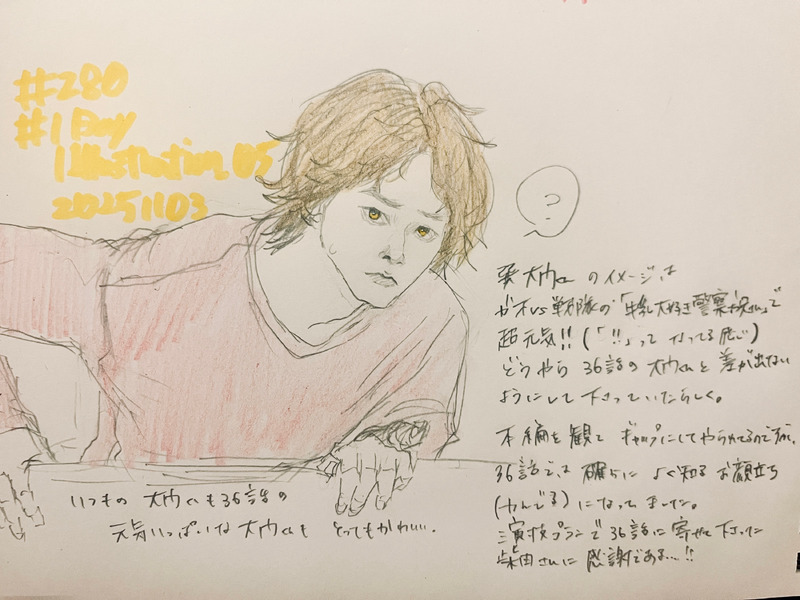 #280
#1Day
Illustration_05
20251103
?
大ウくんのイメージは
ガオVS戦隊の「牛乳大好き警察さん」で
超元気!!(「!!」ってなってる感じ)
どうやら36話の大ウくんと差が出ない
ようにして下さっていたらしく。
本編を観てギャップにしてやられてるのですが、
36話では確かによく知るお顔立ち
(かんでる)になってました。
演技プランで36話に寄せて下さった
柴田さんに感謝である…!!
いつもの大ウくんも36話の
元気いっぱいな大ウくんもとってもかわいい。